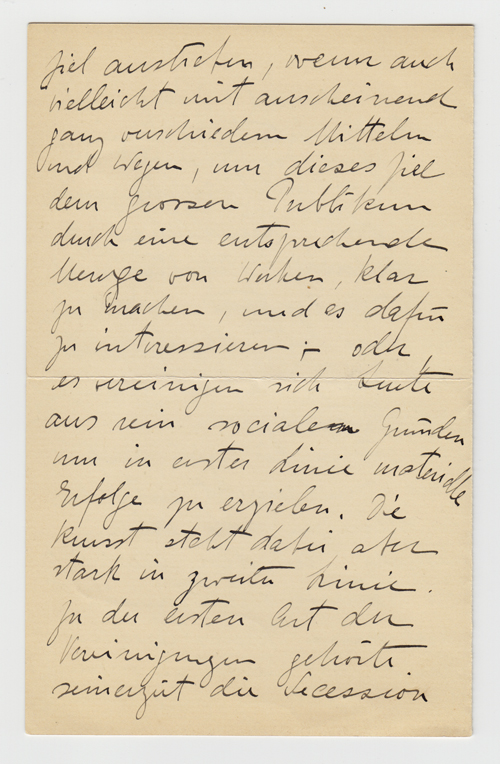 Ziel anstreben, wenn auch
vielleicht mit anscheinend
ganz verschiedenen Mitteln
und Wegen, um dieses Ziel
dem grossen Publikum
durch eine entsprechende
Menge von Werken, klar
zu machen, und es dafür
zu interessieren; – oder,
es vereinigen sich Leute
aus rein socialen Gründen
um in erster Linie materielle
Erfolge zu erzielen. Die
Kunst steht dabei aber
stark in zweiter Linie.
Zu der ersten Art der
Vereinigungen gehörte
seinerzeit die Secession